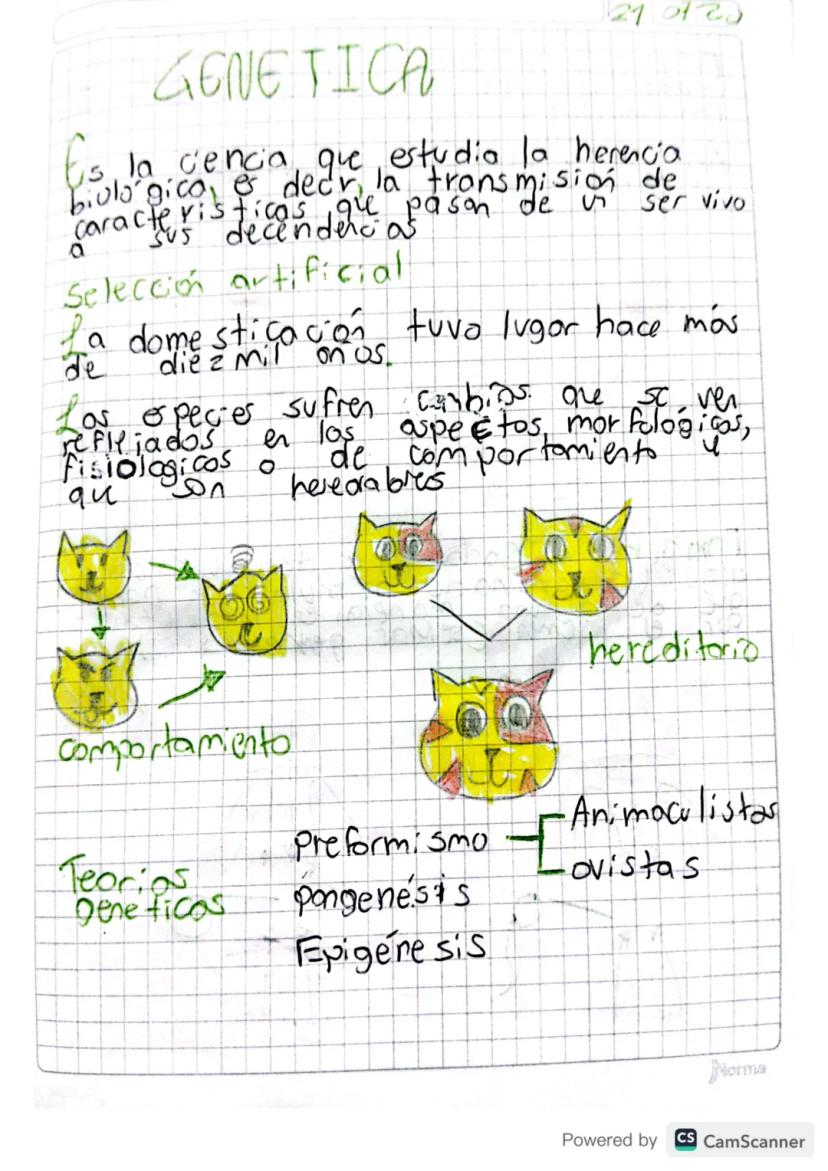 GENETICA
Es la ciencia que estudia la herencia
biológica, es decir, la transmisión de
características que pasan de un ser vivo
a sus decendencias
Selección artificial
La domesticación tuvo lugar hace más
de diez mil años.
Las especies sufren cambios que se ven
reflejados en los aspectos, morfológicos,
fisiologicos o de comportamiento y
que son heredables
hereditario
comportamiento
Preformismo
Animaculistas
ovistas
Teorias
geneticas
pangenésis
Epigénesis
Norma
Powered by CS CamScanner